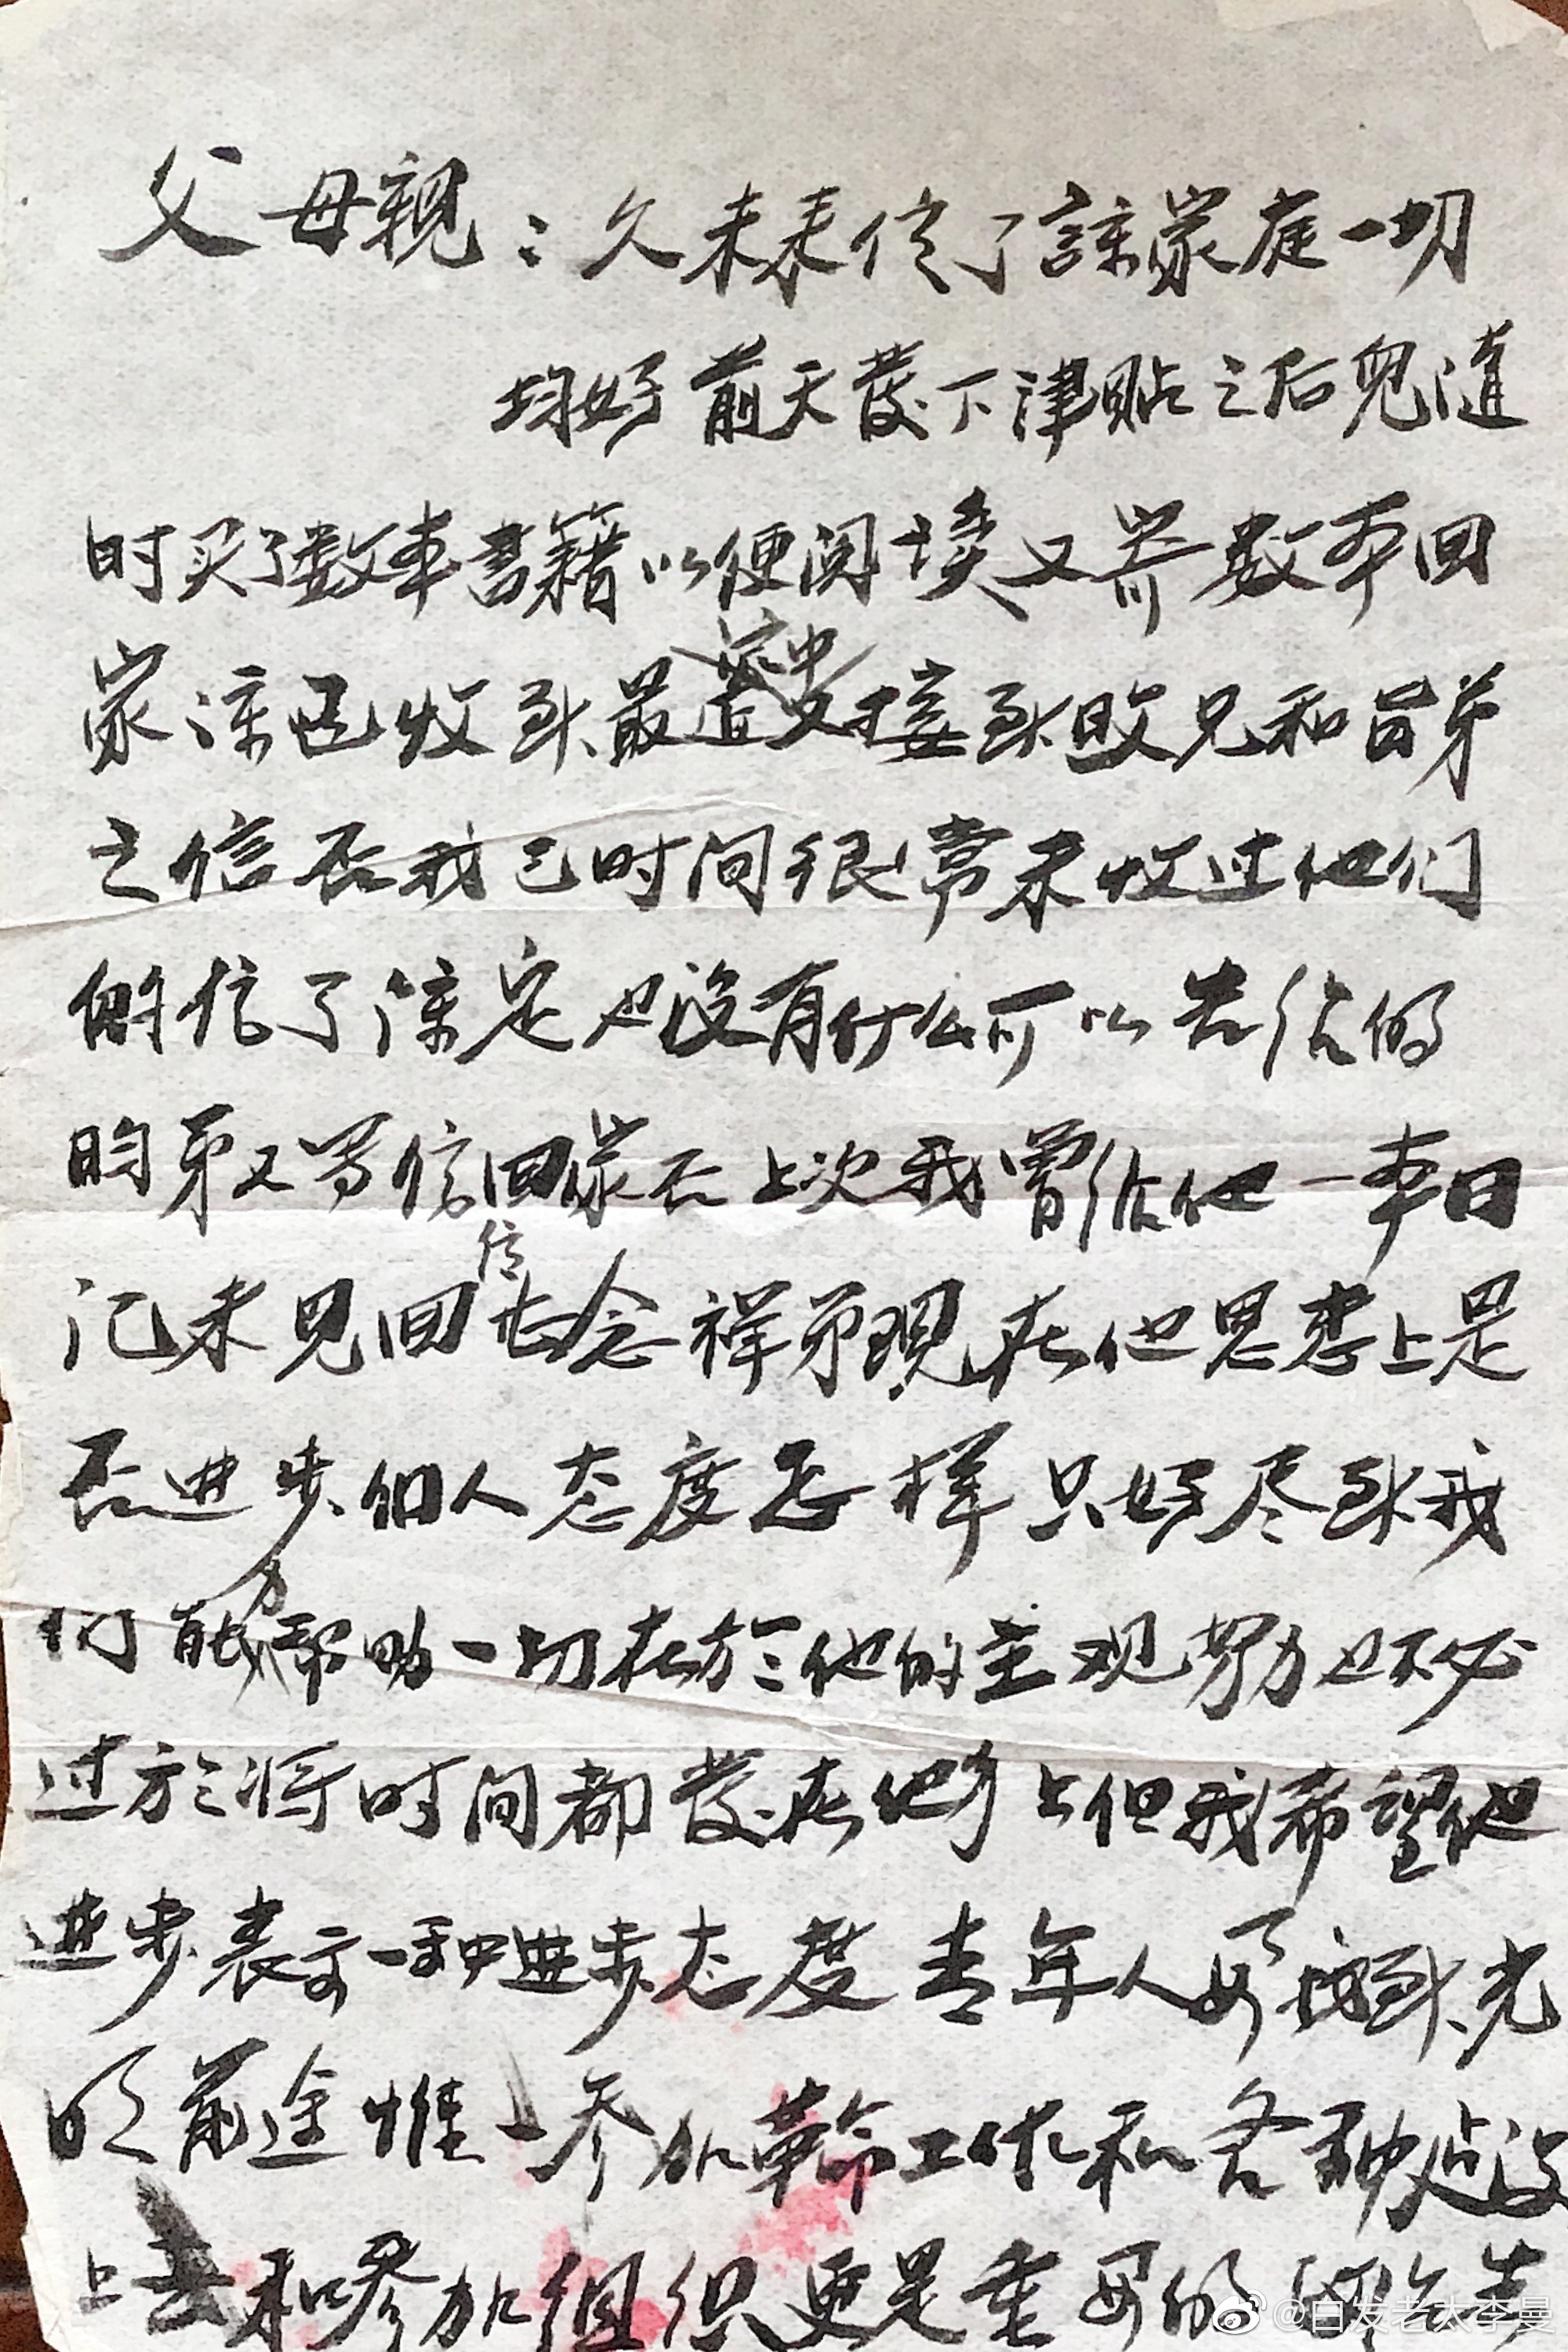 父母親：久未奉信了諒家庭一切
均好前天發下津贴之后兒随
时买了数本書籍以便阅读又寄数本回
家谅已收到最近又接到
之信否我已时间很常未收过他们
的信了谅定也没有什么可以告给的
昀弟又写信回家否上次我曾给他一本日
记未见回信
念祥弟现在他思想上是
否进步個人态度怎样只好尽到我
们能力帮助一切在於他的主观努力也不必
过於将时间都發在他身上但我希望他
进步表示一种进步态度青年人要找到光
明前途惟一参加革命工作和各种建设
上去和参加组织更是重要的
@白发老太李曼